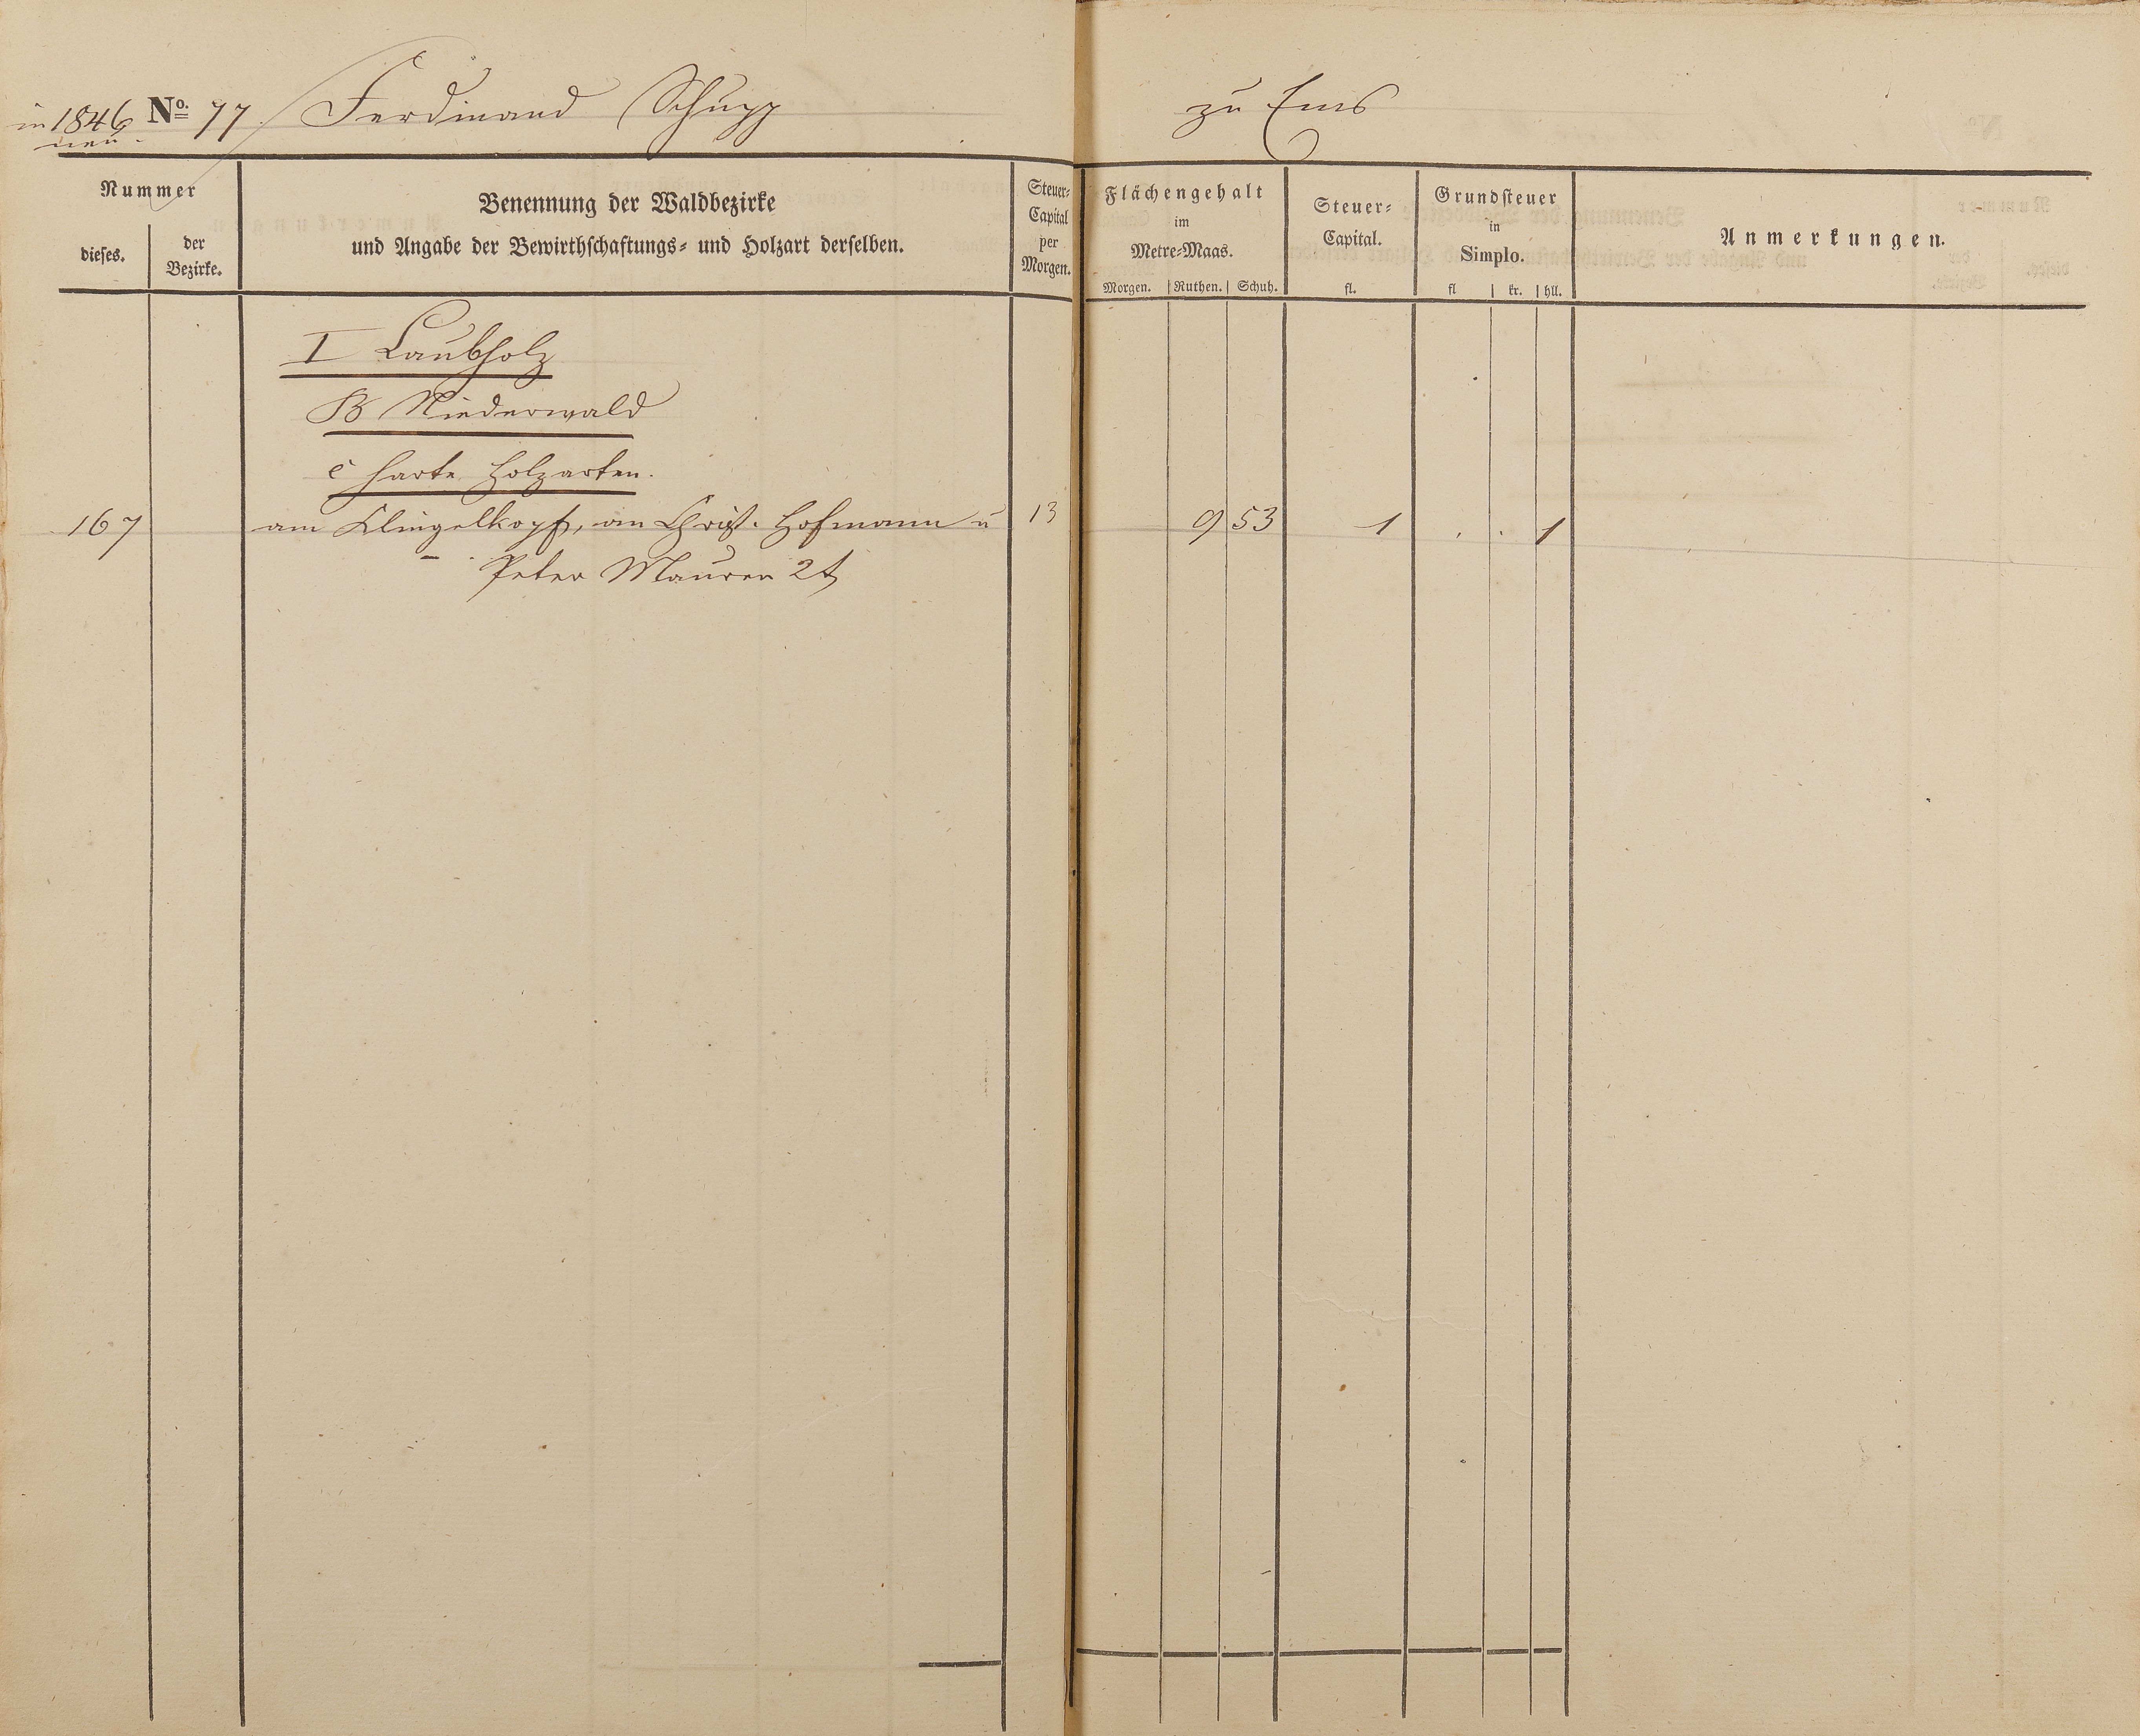 in 1846 No. 77. Ferdinand Schupp zu Ems
neu.
Nummer
dieses.
der
Bezirke.
Benennung der Waldbezirke
und Angabe der Bewirthschaftungs- und Holzart derselben.
Steuer-
Capital
per
Morgen.
Flächengehalt
im
Metre-Maas.
Morgen. Ruthen. Schuh.
Steuer-
Capital.
fl.
Grundsteuer
in
Simplo.
fl kr. hll.
Anmerkungen.
I Laubholz
B Niederwald
c harte Holzarten.
167 am Klingelkopf, an Christ. Hofmann u 13 9 53 1 . . 1
Peter Maurer 2t